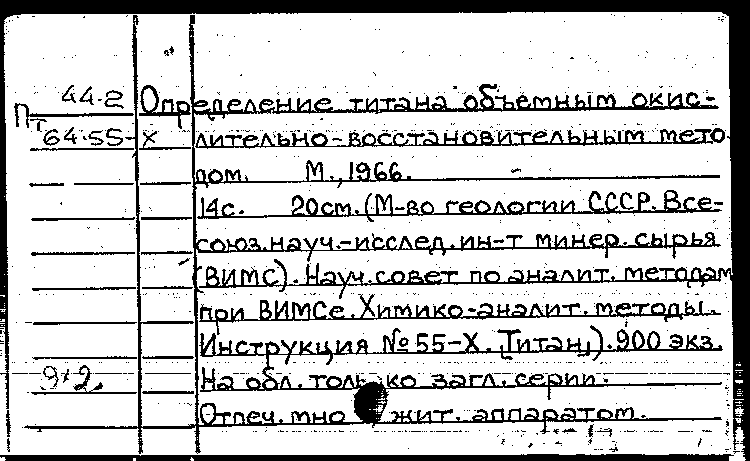 44.2 Определение титана объемным окис-
Пт 64.55-х лительно-восстановительным мето-
дом. М., 1966.
14с. 20см. (М-во геологии СССР. Все-
союз. науч.-исслед. ин-т минер. сырья
(ВИМС). Науч. совет по аналит. методам
при ВИМСе. Химико-аналит. методы.
Инструкция № 55-Х. [Титан]). 900 экз.
На обл. только загл. серии.
Отпеч. множит. аппаратом.